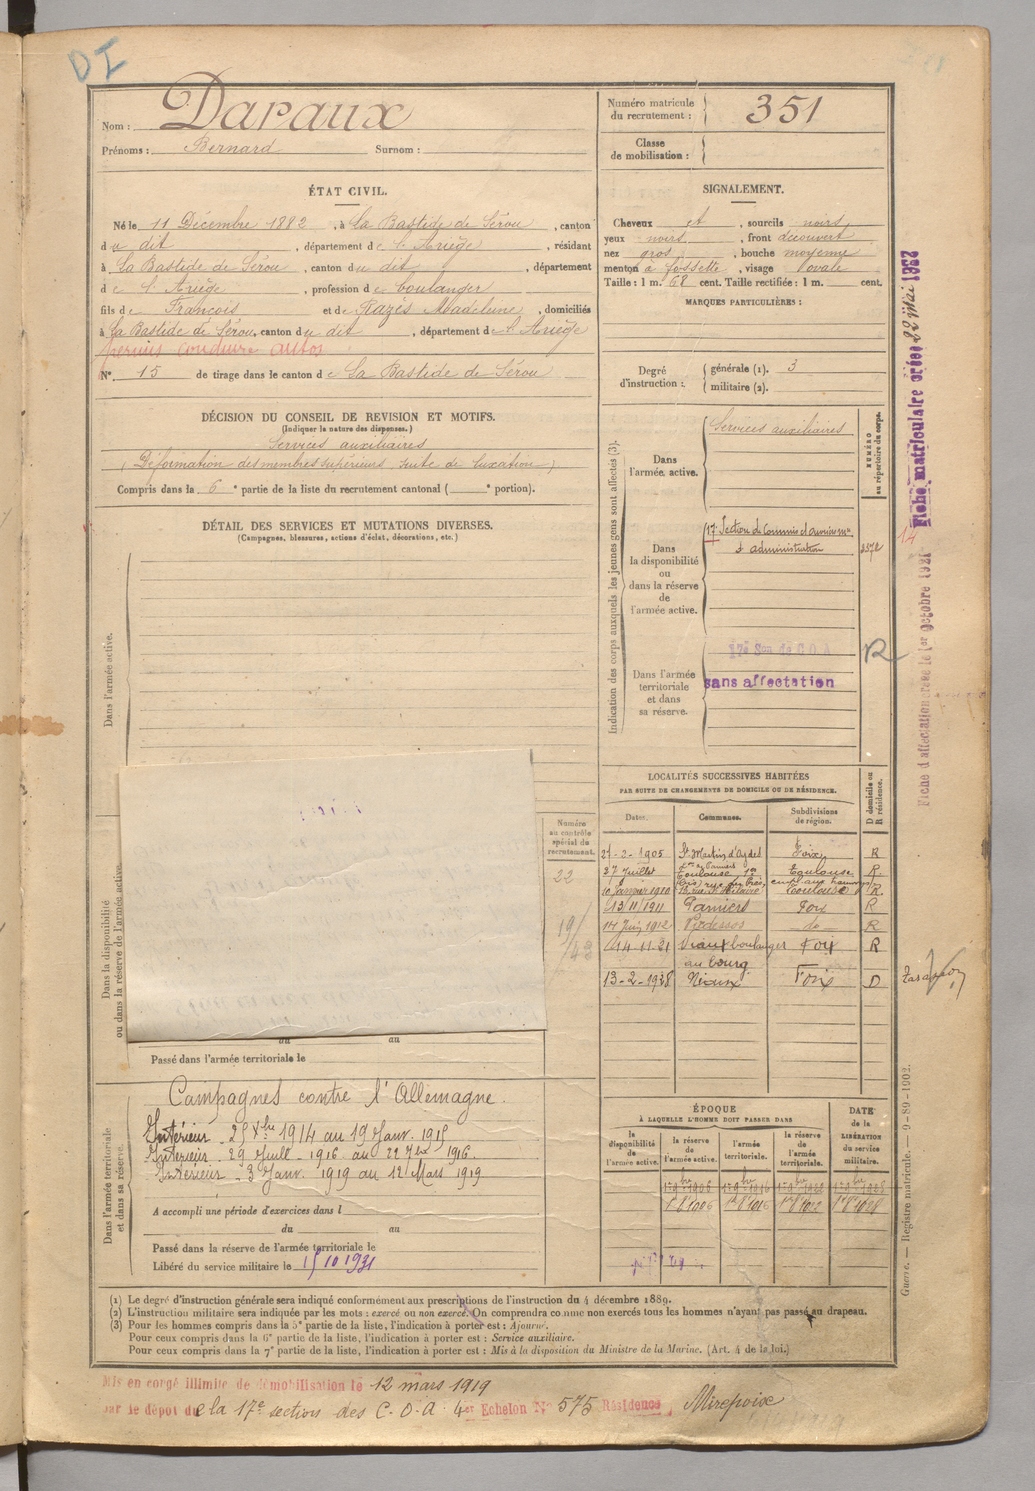 DI
Nom : Daraux
Prénoms : Bernard Surnom :
Numéro matricule du recrutement : 351
Classe de mobilisation :
ÉTAT CIVIL.
Né le 11 Décembre 1882, à La Bastide de Sérou, canton
du dit, département de l'Ariège, résidant
à La Bastide de Sérou, canton du dit, département
de l'Ariège, profession de boulanger
fils de François et de Razés Madeleine, domiciliés
à La Bastide de Sérou, canton du dit, département de l'Ariège
permis conduire autos
N° 15 de tirage dans le canton de La Bastide de Sérou
SIGNALEMENT.
Cheveux et, sourcils noirs
yeux noirs, front découvert
nez gros, bouche moyenne
menton à fossette, visage ovale
Taille : 1 m. 68 cent. Taille rectifiée : 1 m. cent.
MARQUES PARTICULIÈRES :
Degré d'instruction : générale (1). 3
militaire (2).
DÉCISION DU CONSEIL DE REVISION ET MOTIFS.
(Indiquer la nature des dispenses.)
Services auxiliaires
(Déformation des membres supérieurs suite de luxation)
Compris dans la 6e partie de la liste du recrutement cantonal ( e portion).
DÉTAIL DES SERVICES ET MUTATIONS DIVERSES.
(Campagnes, blessures, actions d'éclat, décorations, etc.)
Dans l'armée active.
Dans la disponibilité ou dans la réserve de l'armée active.
Numéro au contrôle spécial du recrutement.
22
19/43
du au
Passé dans l'armée territoriale le
Dans l'armée territoriale et dans sa réserve.
Campagnes contre l'Allemagne.
Intérieur - 25 Xbre 1914 au 19 Janv. 1915
Intérieur - 29 Juill - 1916 au 22 7bre 1916.
Intérieur - 3 Janv. 1919 au 12 Mars 1919
A accompli une période d'exercices dans l
du au
Passé dans la réserve de l'armée territoriale le
Libéré du service militaire le 15 10 1931
Indication des corps auxquels les jeunes gens sont affectés (3).
NUMÉRO au répertoire du corps.
Dans l'armée active.
Services auxiliaires
Dans la disponibilité ou dans la réserve de l'armée active.
17e Section de Commis et ouvriers m.
d'administration
Dans l'armée territoriale et dans sa réserve.
17e Son de C.O.A
sans affectation
R
LOCALITÉS SUCCESSIVES HABITÉES
PAR SUITE DE CHANGEMENTS DE DOMICILE OU DE RÉSIDENCE.
D domicile ou R résidence.
Dates. Communes. Subdivisions de région.
2-1905 St Martin d'Oydes Foix R
27 Juillet Toulouse Toulouse R.
10 Janvier 1910 Toulouse R.
13/11/1911 Pamiers Foix R
14 Juin 1912 Vicdessos do R
14.11.31 boulanger Foix R
au bourg
13-2-1938 Niaux Foix D
Tarascon
ÉPOQUE
À LAQUELLE L'HOMME DOIT PASSER DANS
la disponibilité de l'armée active. la réserve de l'armée active. l'armée territoriale. la réserve de l'armée territoriale.
DATE de la LIBÉRATION du service militaire.
Fiche matriculaire créée 22 Mai 1933
Fiche d'affectation créée le 1er Octobre 1921
Guerre. — Registre matricule. — 9-89-1902.
(1) Le degré d'instruction générale sera indiqué conformément aux prescriptions de l'instruction du 4 décembre 1889.
(2) L'instruction militaire sera indiquée par les mots : exercé ou non exercé. On comprendra comme non exercés tous les hommes n'ayant pas passé au drapeau.
(3) Pour les hommes compris dans la 5e partie de la liste, l'indication à porter est : Ajourné.
Pour ceux compris dans la 6e partie de la liste, l'indication à porter est : Service auxiliaire.
Pour ceux compris dans la 7e partie de la liste, l'indication à porter est : Mis à la disposition du Ministre de la Marine. (Art. 4 de la loi.)
Mis en congé illimité de démobilisation le 12 mars 1919
par le dépot de la 17e section des C.O.A 4er Echelon N° 575 Résidence Mirepoix